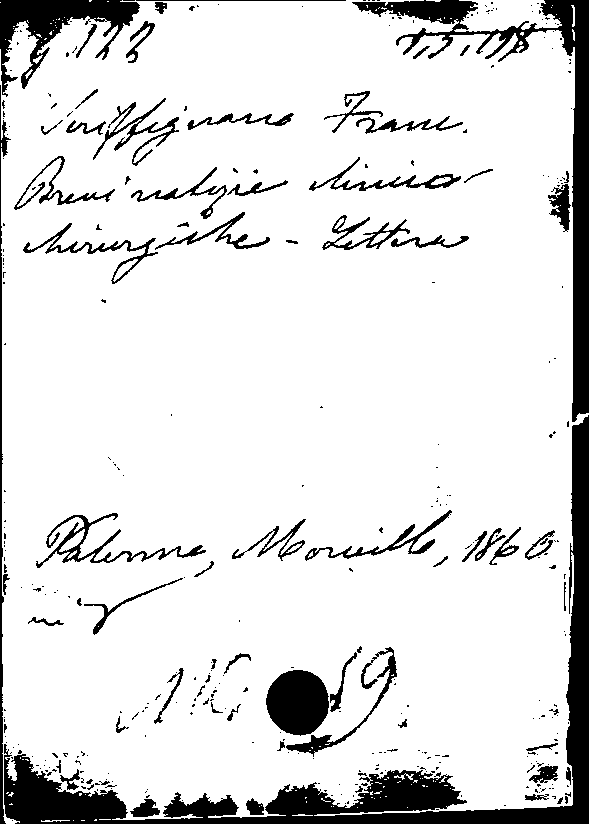 g 122 1.5.198
Scuffignano Franc.
Brevi notizie clinico-
chirurgiche - Lettera
Palermo, Morvillo, 1860.
in 8